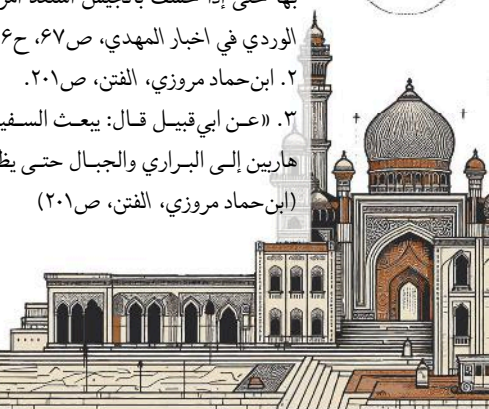 بها حتى إذا خسف بالجيش استعد امر
الوردي في اخبار المهدي، ص۶۷، ح۶
۲. ابن‌حماد مروزي، الفتن، ص۲۰۱.
۳. «عـن ابي‌قبيـل قـال: يبعـث السـفيـ
هاربين إلـى البـراري والجبـال حتـى يظ
(ابن‌حماد مروزي، الفتن، ص۲۰۱)